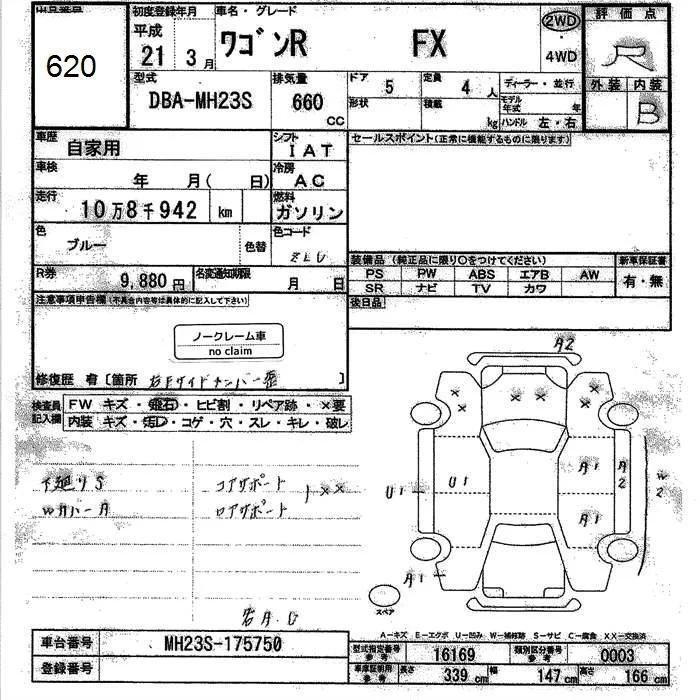 出品番号
620
初度登録年月
平成
21 3月
車名・グレード
ワゴンR FX
2WD
・
4WD
評価点
R
外装 内装
B
型式
DBA-MH23S
排気量
660
CC
ドア
5
定員
4 人
形状
積載
kg
ディーラー・並行
モデル年式 年
ハンドル 左・右
車歴
自家用
シフト
IAT
車検
年 月( 日)
冷房
AC
走行
10万8千942 km
燃料
ガソリン
色
ブルー
色替
色コード
ZLU
R券
9,880円
名変通知期限
月 日
セールスポイント(正常に機能するものに限ります)
装備品 (純正品に限り○をつけてください)
PS PW ABS エアB AW
SR ナビ TV カワ
新車保証書
有・無
後日品
注意事項申告欄(不具合内容等は具体的に記入して下さい)
ノークレーム車
no claim
修復歴 有 [箇所 ]
検査員記入欄
FW キズ・飛石・ヒビ割・リペア跡・×要
内装 キズ・汚レ・コゲ・穴・スレ・キレ・破レ
下廻りS
WカバーA
コアサポート
ロアサポート
××
A2
U1
U1
A1
A1
A2
W2
A1
スペア
A-キズ E-エクボ U-凹み W-補修跡 S-サビ C-腐食 XX-交換済
車台番号
MH23S-175750
登録番号
型式指定番号
参考
16169
類別区分番号
参考
0003
車庫証明用
参考
長さ 339 cm
幅 147 cm
高さ 166 cm